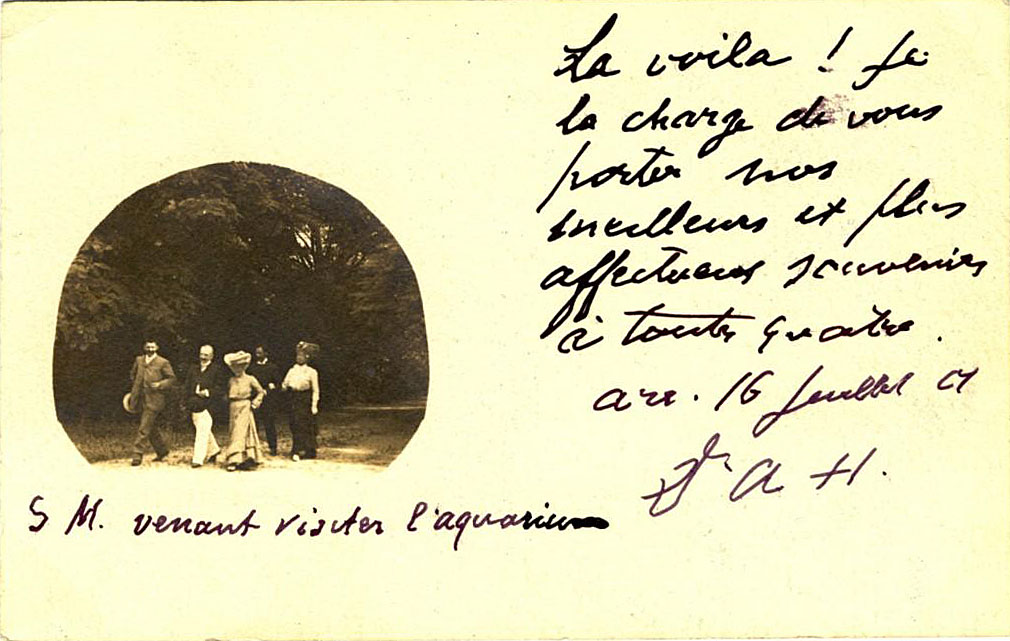 La voila ! Je
la charge de vous
porter nos
meilleurs et plus
affectueux souvenirs
à toutes quatre.
arc. 16 Juillet
Dr A H.
S M. venant visiter l'aquarium